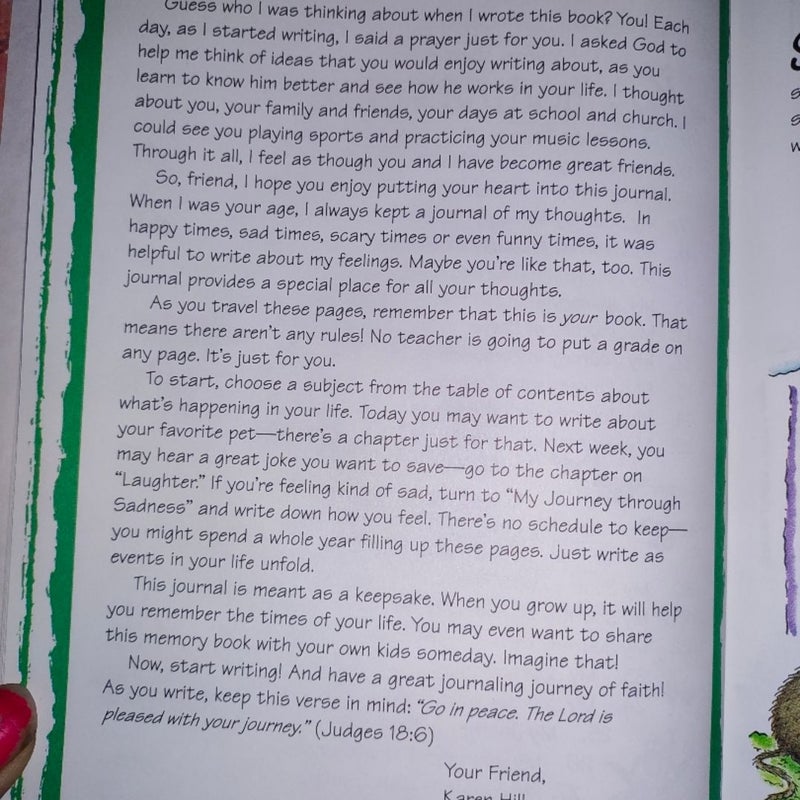 Guess who I was thinking about when I wrote this book? You! Each
day, as I started writing, I said a prayer just for you. I asked God to
help me think of ideas that you would enjoy writing about, as you
learn to know him better and see how he works in your life. I thought
about you, your family and friends, your days at school and church. I
could see you playing sports and practicing your music lessons.
Through it all, I feel as though you and I have become great friends.
So, friend, I hope you enjoy putting your heart into this journal.
When I was your age, I always kept a journal of my thoughts. In
happy times, sad times, scary times or even funny times, it was
helpful to write about my feelings. Maybe you're like that, too. This
journal provides a special place for all your thoughts.
As you travel these pages, remember that this is your book. That
means there aren't any rules! No teacher is going to put a grade on
any page. It's just for you.
To start, choose a subject from the table of contents about
what's happening in your life. Today you may want to write about
your favorite pet—there's a chapter just for that. Next week, you
may hear a great joke you want to save—go to the chapter on
"Laughter." If you're feeling kind of sad, turn to "My Journey through
Sadness" and write down how you feel. There's no schedule to keep—
you might spend a whole year filling up these pages. Just write as
events in your life unfold.
This journal is meant as a keepsake. When you grow up, it will help
you remember the times of your life. You may even want to share
this memory book with your own kids someday. Imagine that!
Now, start writing! And have a great journaling journey of faith!
As you write, keep this verse in mind: "Go in peace. The Lord is
pleased with your journey." (Judges 18:6)
Your Friend,
Karen Hill